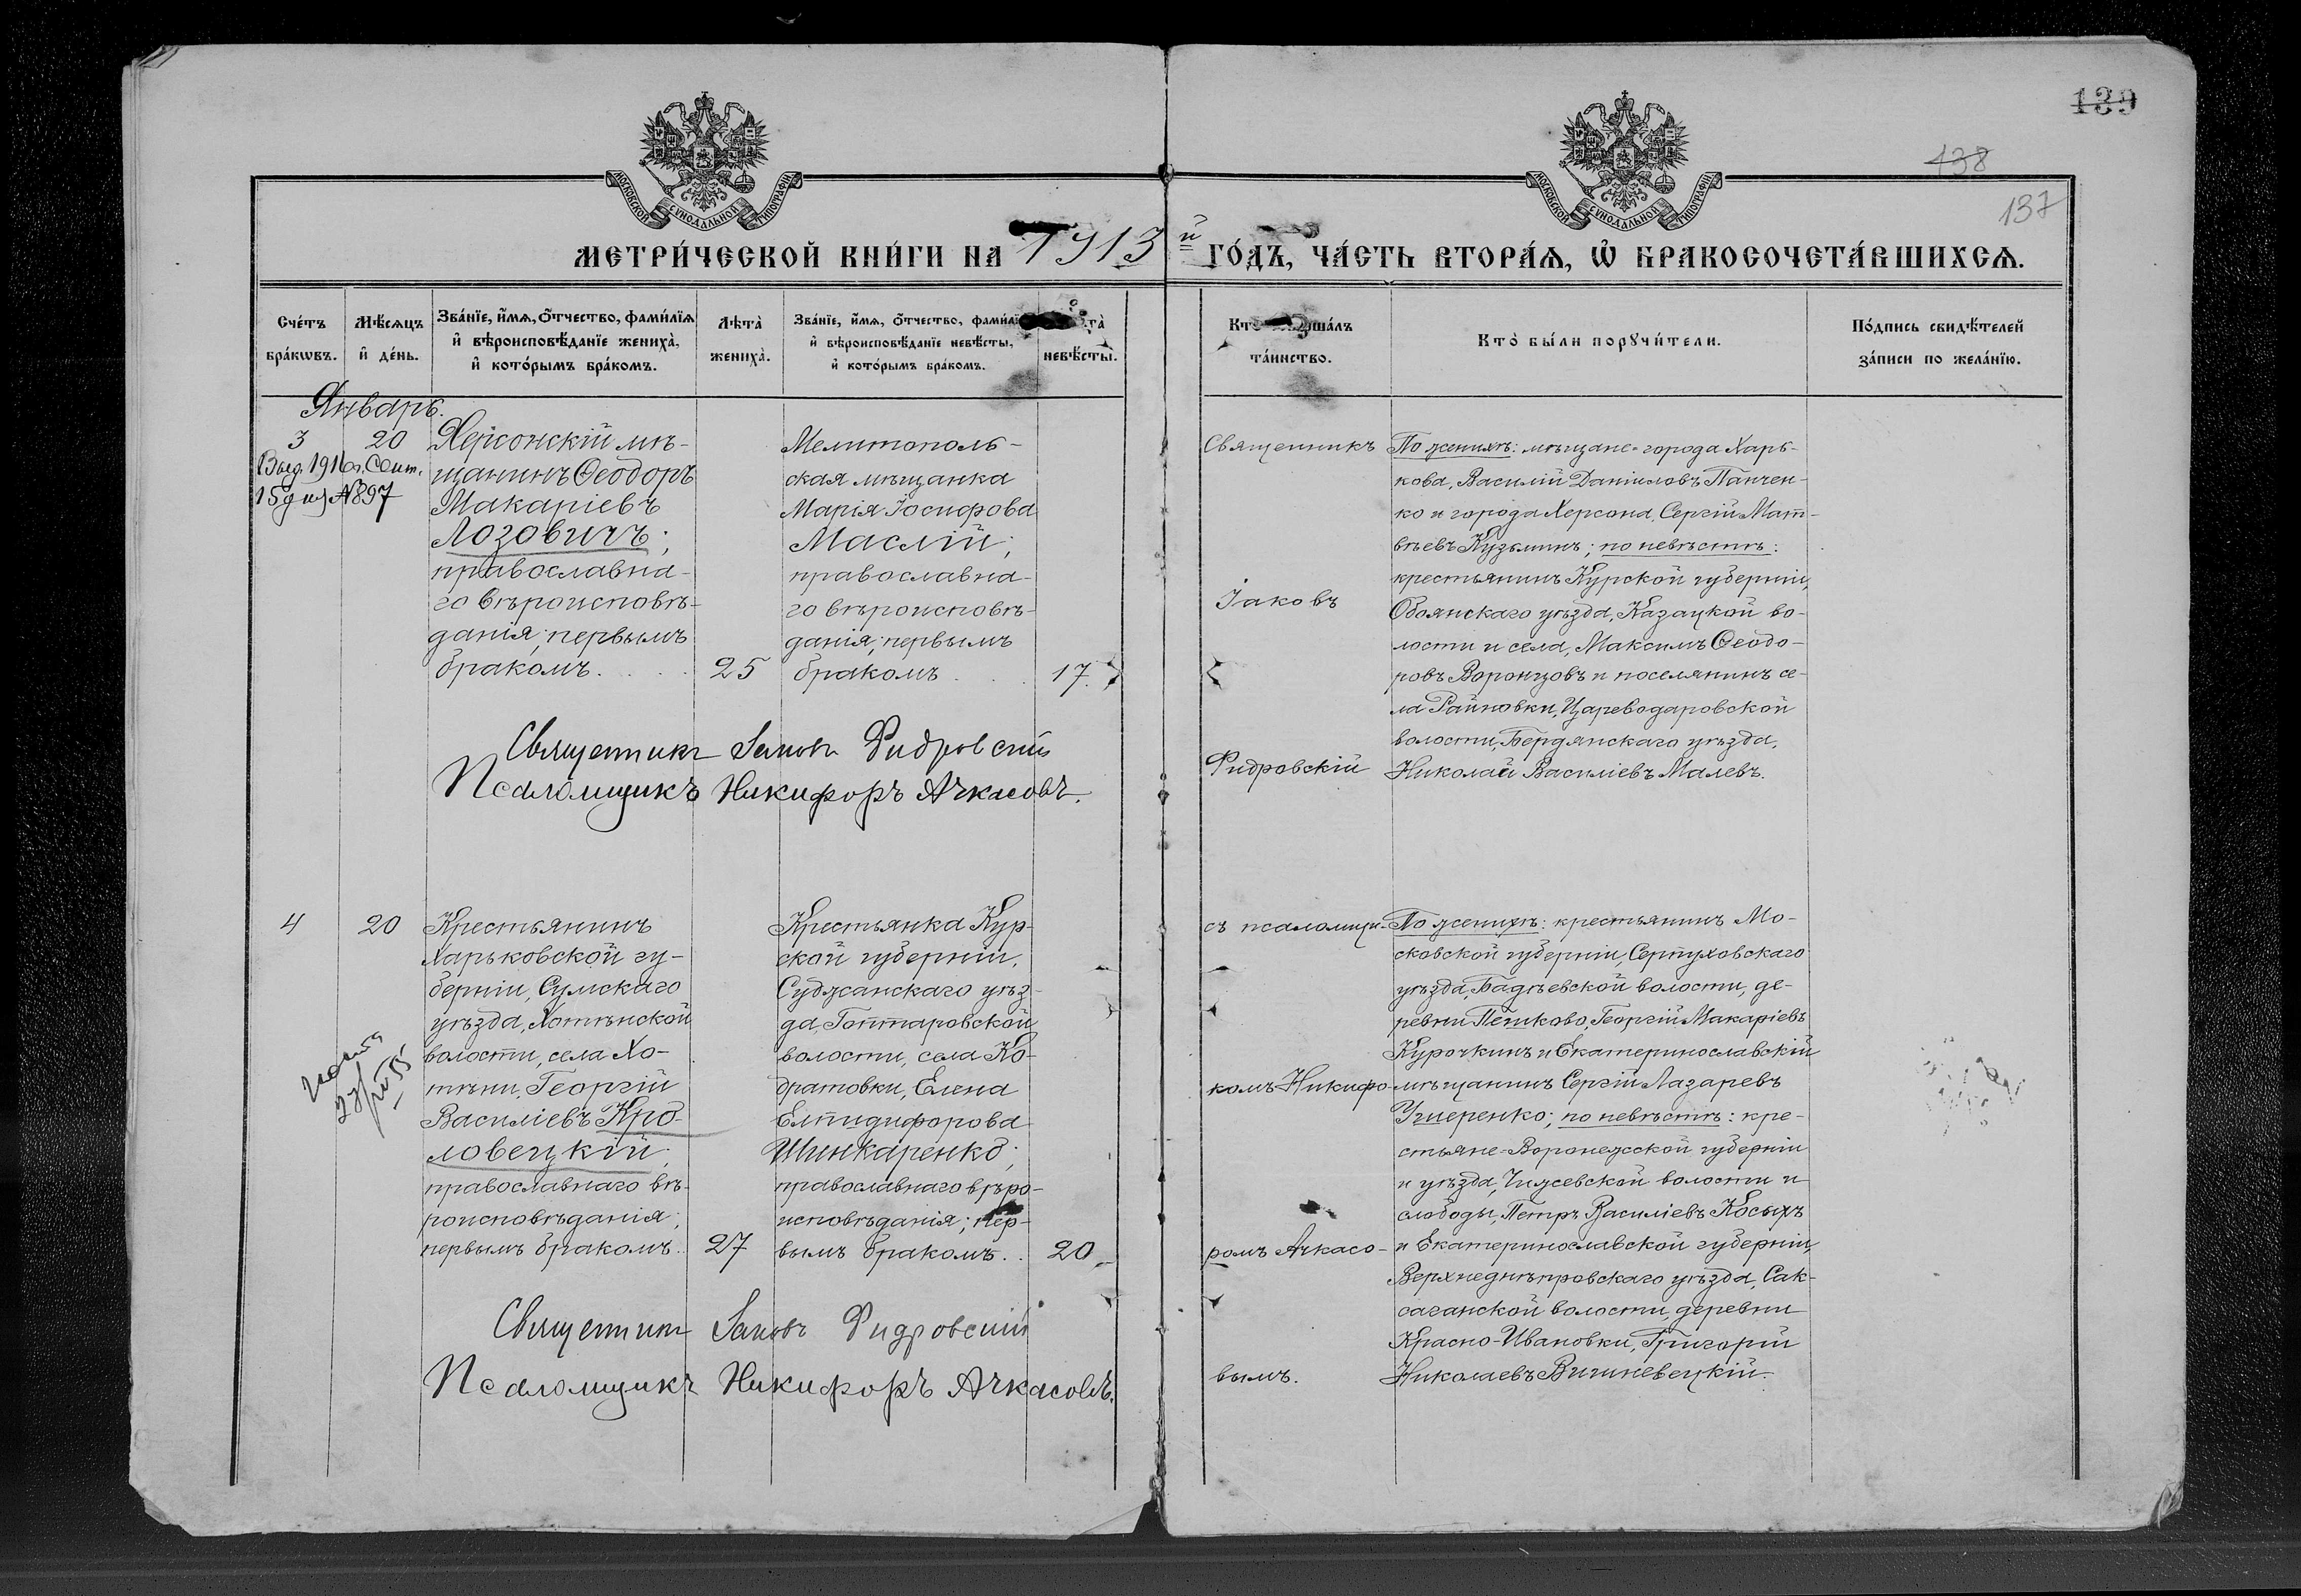 139
138
137
МОСКОВСКОЙ СѴНОДАЛЬНОЙ ТИПОГРАФІИ
МОСКОВСКОЙ СѴНОДАЛЬНОЙ ТИПОГРАФІИ
МЕТРИ́ЧЕСКОЙ КНИ́ГИ НА 1913 й ГО́ДЪ, ЧА́СТЬ ВТОРА́Ѧ, Ѡ҆ БРАКОСОЧЕТА́ВШИХСѦ.
Сче́тъ бра́кѡвъ.
Мѣ́сяцъ и҆ де́нь.
Зва́нїе, и҆́мѧ, ѻ҆́тчество, фами́лїѧ
и҆ вѣроисповѣ́данїе жениха̀,
и҆ кото́рымъ бра́комъ.
Лѣта̀ жениха̀.
Зва́нїе, и҆́мѧ, ѻ҆́тчество, фами́лї
и҆ вѣроисповѣ́данїе невѣ́сты,
и҆ кото́рымъ бра́комъ.
та̀ невѣ́сты.
Кто̀ ша́лъ
та́инство.
Кто̀ бы́ли порꙋчи́тели.
По́дпись свидѣ́телей
за́писи по жела́нїю.
Январь.
3
20
Выд. 1916 г. Сент.
15 дня № 897
Херсонскій мѣ-
щанинъ Ѳеодоръ
Макаріевъ
Лозовичъ;
православна-
го вѣроисповѣ-
данія; первымъ
бракомъ.
25
Мелитополь-
ская мѣщанка
Марія Іосифова
Маслій;
православна-
го вѣроисповѣ-
данія; первымъ
бракомъ
17.
Священникъ
Іаковъ
Фидровскій
По женихѣ: мѣщане-города Харь-
кова, Василій Даніиловъ Панчен-
ко и города Херсона, Сергій Мат-
вѣевъ Кузьминъ; по невѣстѣ:
крестьянинъ Курской губерніи,
Обоянскаго уѣзда, Казацкой во-
лости и села, Максимъ Ѳеодо-
ровъ Воронцовъ и поселянинъ се-
ла Райновки, Цареводаровской
волости, Бердянскаго уѣзда,
Николай Василіевъ Малевъ.
Священникъ Іаковъ Фидровскій
Псаломщикъ Никифоръ Ачкасовъ.
4
20
Крестьянинъ
Харьковской гу-
берніи, Сумскаго
уѣзда, Хотѣнской
волости, села Хо-
тѣни, Георгій
Василіевъ Кро-
ловецкій;
православнаго вѣ-
роисповѣданія;
первымъ бракомъ.
27
Крестьянка Кур-
ской губерніи,
Суджанскаго уѣз-
да, Готтаровской
волости, села Ко-
дратовки, Елена
Елпидифорова
Шинкаренко;
православнаго вѣро-
исповѣданія; пер-
вымъ бракомъ.
20
съ псаломщи-
комъ Никифо-
ромъ Ачкасо-
вымъ.
По женихѣ: крестьянинъ Мо-
сковской губерніи, Серпуховскаго
уѣзда, Бадѣевской волости, де-
ревни Пешково, Георгій Макаріевъ
Курочкинъ и Екатеринославскій
мѣщанинъ Сергій Лазаревъ
Учмеренко; по невѣстѣ: кре-
стьяне-Воронежской губерніи
и уѣзда, Чижевской волости и
слободы, Петръ Василіевъ Косыхъ
и Екатеринославской губерніи,
Верхнеднѣпровскаго уѣзда, Сак-
саганской волости, деревни
Красно-Ивановки, Григорій
Николаевъ Вишневецкій.
Священникъ Іаковъ Фидровскій
Псаломщикъ Никифоръ Ачкасовъ.